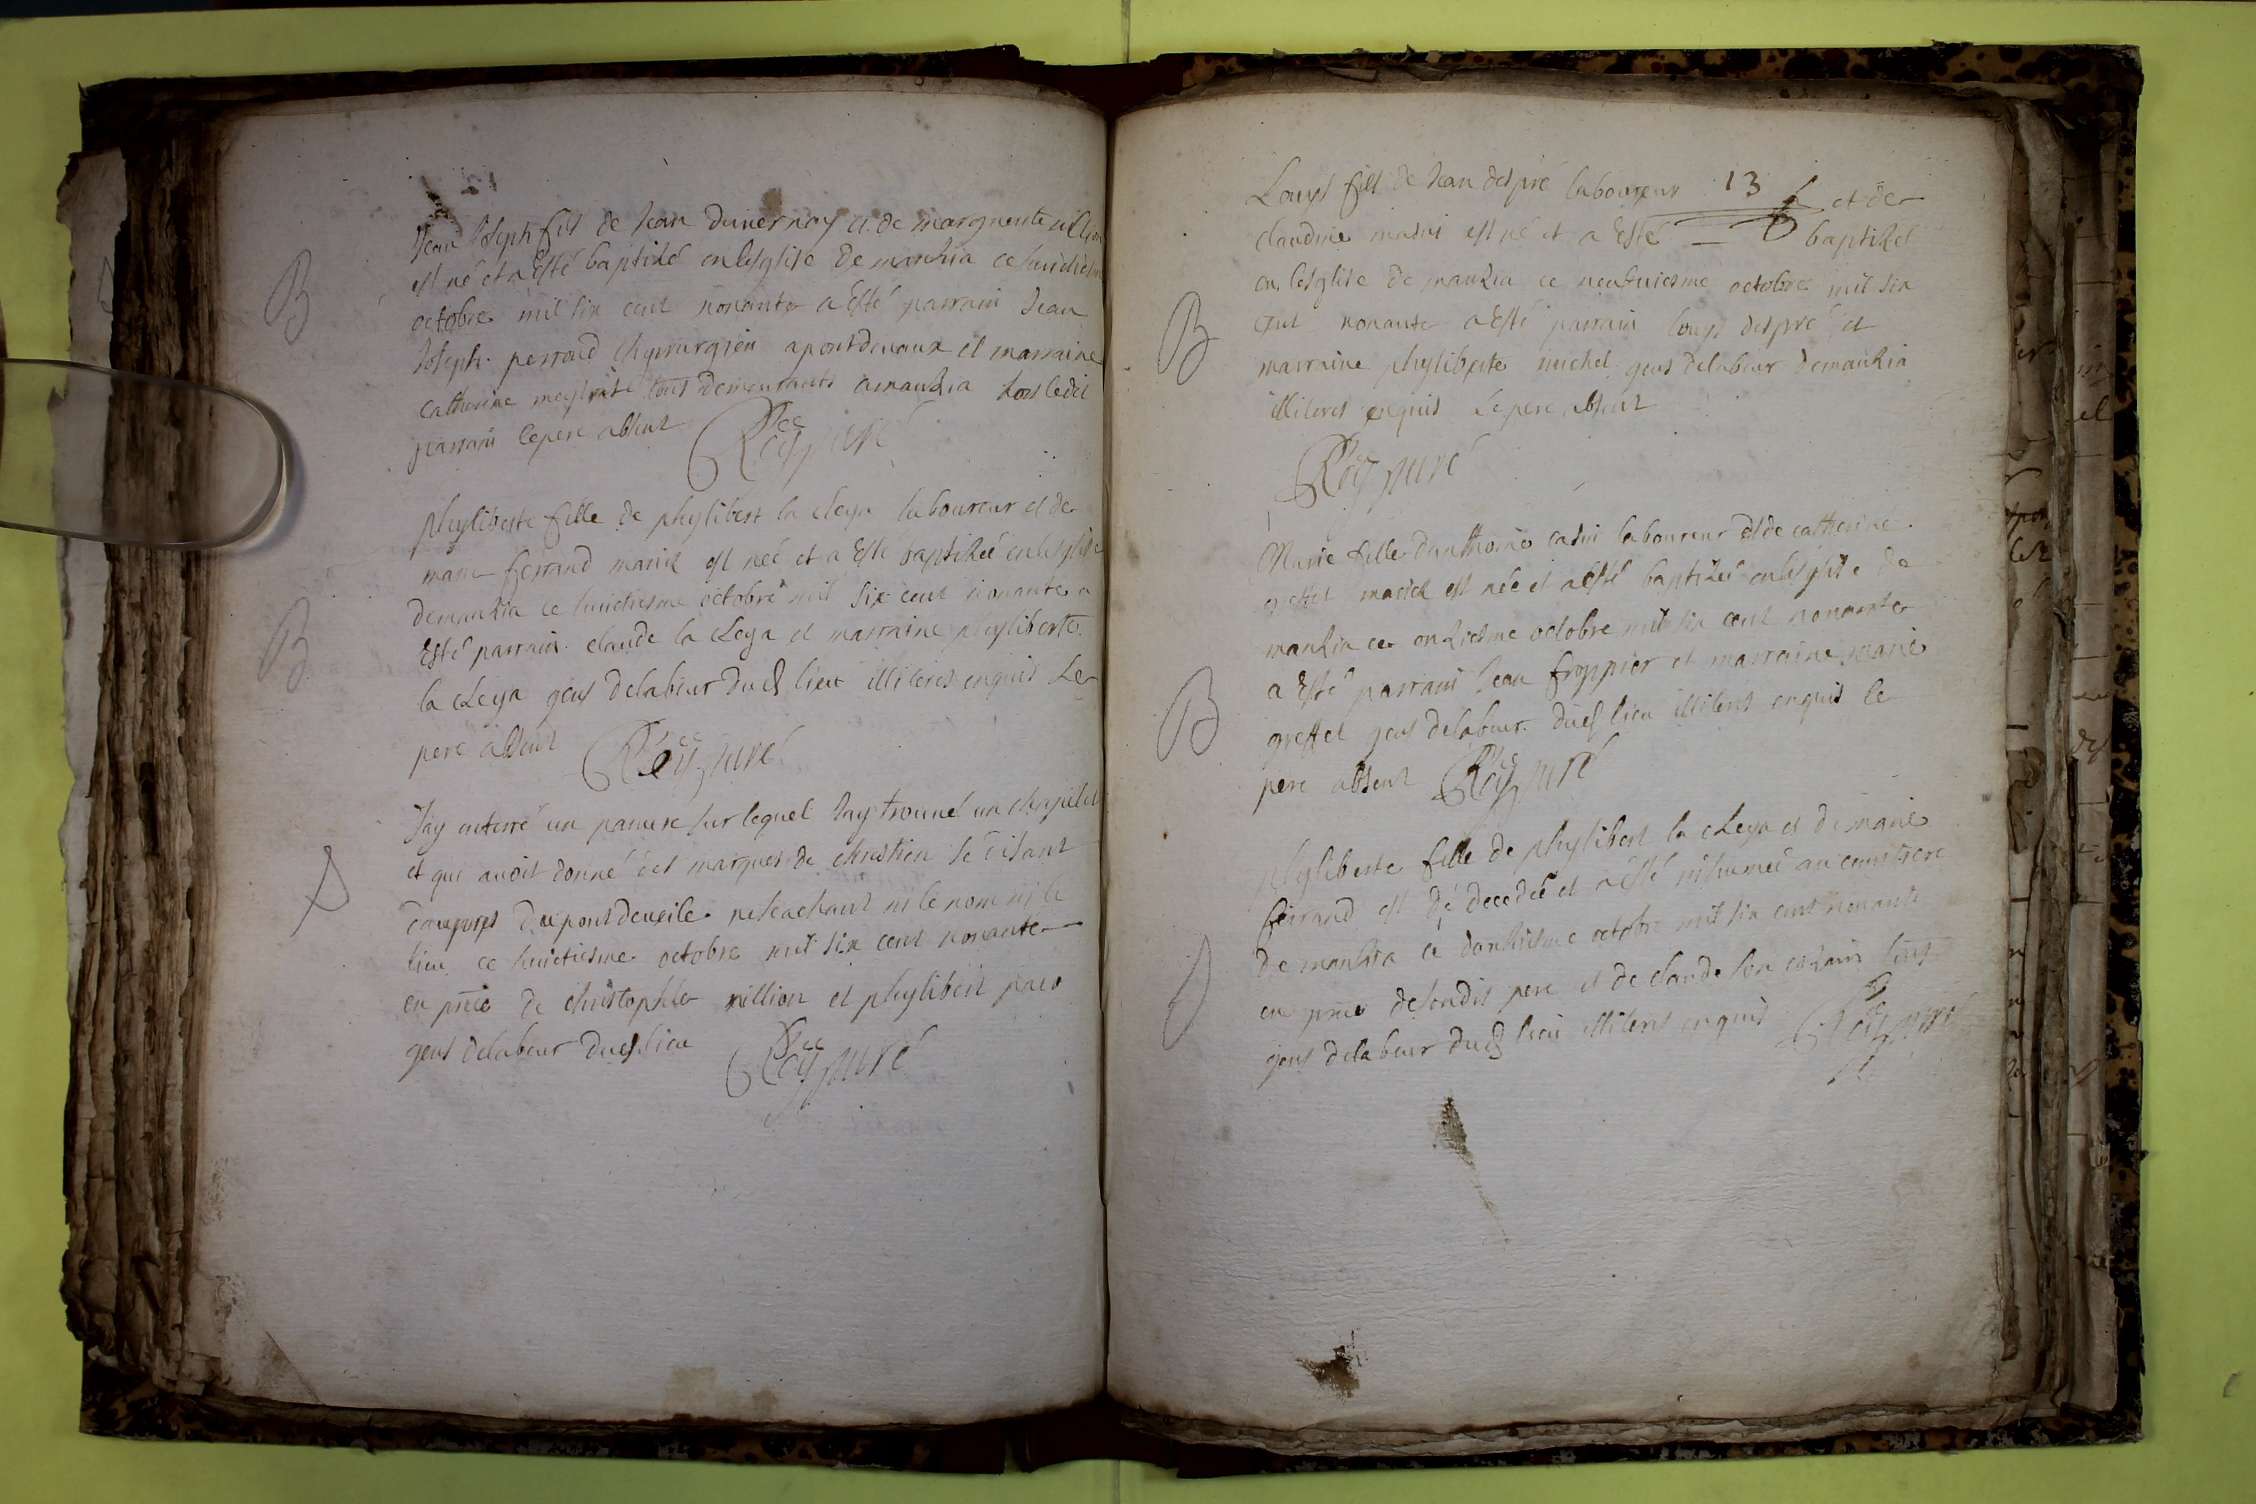 Jean Joseph fils de Jean duvernay et de marguerite villion
est né et a Esté baptizé en lesglise de manzia ce huictiesme
octobre mil six cent nonante a Esté parrain Jean
Joseph perraud chyrurgien a pontdevaux et marraine
catherine tous demeurants a manzia hors ledit
parrain le pere absent
Roÿ curé
B
phyliberte fille de phylibert la cleya laboureur et de
marie ferrand mariez est née et a Esté baptizée en lesglise
de manzia ce huictiesme octobre mil six cent nonante a
Esté parrain claude la cleya et marraine phyliberte
la cleya gens de labeur dud lieu illiteres enquis Le
pere absent
Roÿ curé
B
Jay enterré un pauvre sur lequel Jay trouvé un chapelet
et qui avoit donné des marques de chrestien se disant
du pontdevesle ne scachant ni le nom ni le
lieu ce huictiesme octobre mil six cent nonante
en pnce de christophle villion et phylibert
gens de labeur dud lieu
Roÿ curé
13
Louys fils de Jean despré laboureur et de
claudine est né et a Esté baptizet
en lesglise de manzia ce neufviesme octobre mil six
cent nonante a Esté parrain louys despré et
marraine phyliberte michel gens de labeur de manzia
illiteres enquis Le pere absent
Roÿ curé
B
Marie fille danthoine cadin laboureur et de catherine
greffet mariez est née et a esté baptizée en lesglise de
manzia ce onziesme octobre mil six cent nonante
a Esté parrain Jean froppier et marraine marie
greffet gens de labeur dud lieu illiteres enquis le
pere absent
Roÿ curé
B
phyliberte fille de phylibert la cleya et de marie
ferrand est décedée et a esté inhumée au cemitiere
de manzia ce douziesme octobre mil six cent nonante
en pnce desondit pere et de claude son cousin tous
gens de labeur dud lieu illiteres enquis
Roÿ curé